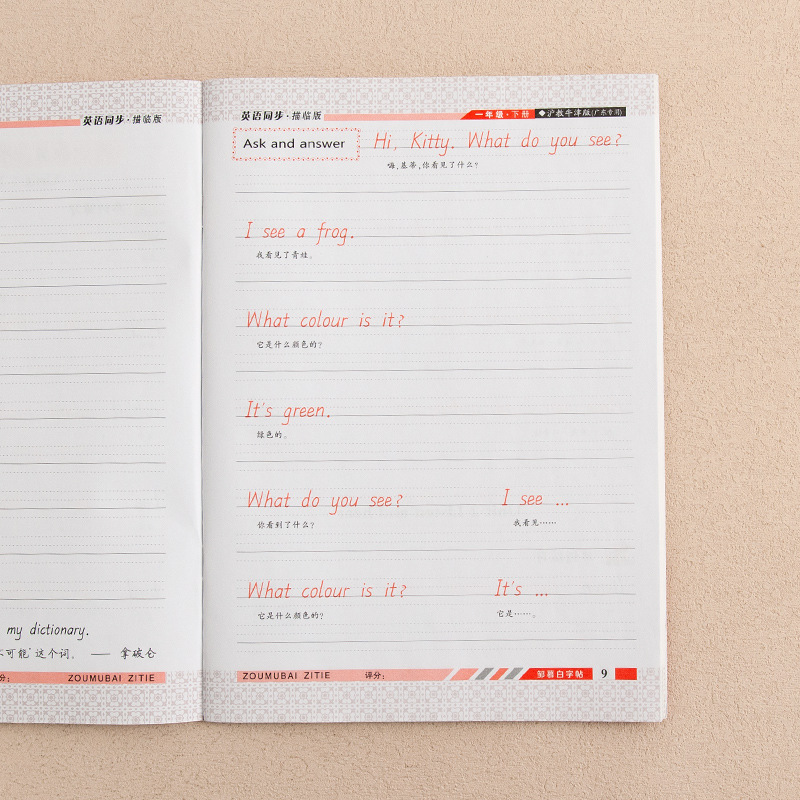 英语同步·描临版
my dictionary.
不可能"这个词。 —— 拿破仑
分:
ZOUMUBAI ZITIE
英语同步·描临版
一年级·下册 ◆沪教牛津版(广东专用)
Ask and answer
Hi, Kitty. What do you see?
嗨,基蒂,你看见了什么?
I see a frog.
我看见了青蛙。
What colour is it?
它是什么颜色的?
It's green.
绿色的。
What do you see? I see ...
你看到了什么? 我看见……
What colour is it? It's ...
它是什么颜色的? 它是……。
ZOUMUBAI ZITIE 评分: 邹慕白字帖 9